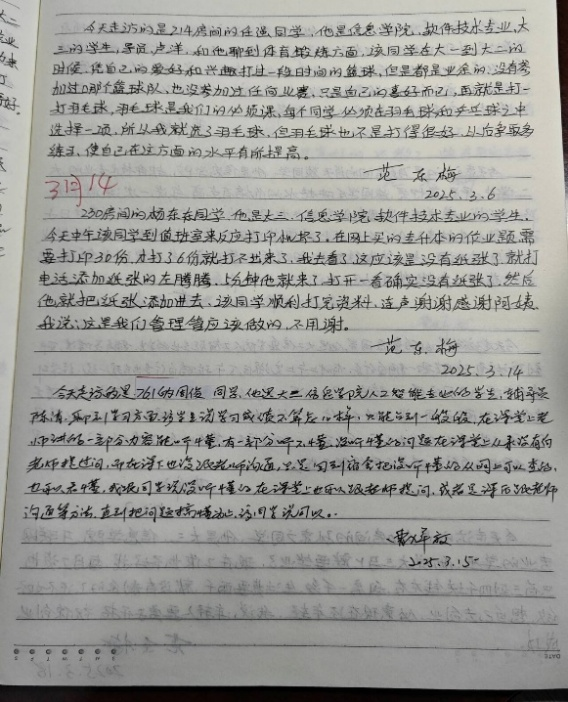 今天走访的是214房间的任强同学,他是信息学院,软件技术专业,大
三的学生,导员,卢洋,和他聊到体育锻炼方面,该同学在大一到大二的
时候,凭自己的爱好和兴趣打过一段时间的篮球,但是都是业余的,没有参
加过哪个篮球队,也没参加过任何比赛,只是自己的喜好而已,再就是打一
打羽毛球,羽毛球是我们的必须课,每个同学必须在羽毛球和乒乓球之中
选择一项,所以我就选了羽毛球,但羽毛球也不是打得很好,从后争取多
练习,使自己在这方面的水平有所提高。
范东梅
2025.3.6
3月14
230房间的杨东东同学,他是大三,信息学院,软件技术专业的学生,
今天中午该同学到值班室来反应打印机坏了,在网上买的专升本的作业题需
要打印30份,才打36份就打不出来了,我去看了,这应该是没有纸张了,就打
电话添加纸张的左腾腾,5分钟他就来了,打开一看确实没有纸张了,然后
他就把纸张添加进去,该同学顺利打完资料,连声谢谢感谢阿姨,
我说:这是我们管理员应该做的,不用谢。
范东梅
2025.3.14
今天走访的是761的周俊同学,他是大二信息学院人工智能专业的学生,辅导员
陈清,聊到学习方面,该学生说学习成绩不算怎么样,只能达到一般般,在课堂上老
师讲的一部分内容能听懂,有一部分听不懂,没听懂的问题在课堂上从来没有向
老师提过问,而在课下也没跟老师沟通,只是回到宿舍把没听懂的从网上可以查到,
也可以看懂,我跟同学说没听懂的在课堂上也可以跟老师提问,或者是课后跟老师
沟通等方法,直到把问题搞懂为止,该同学说可以。
2025.3.15